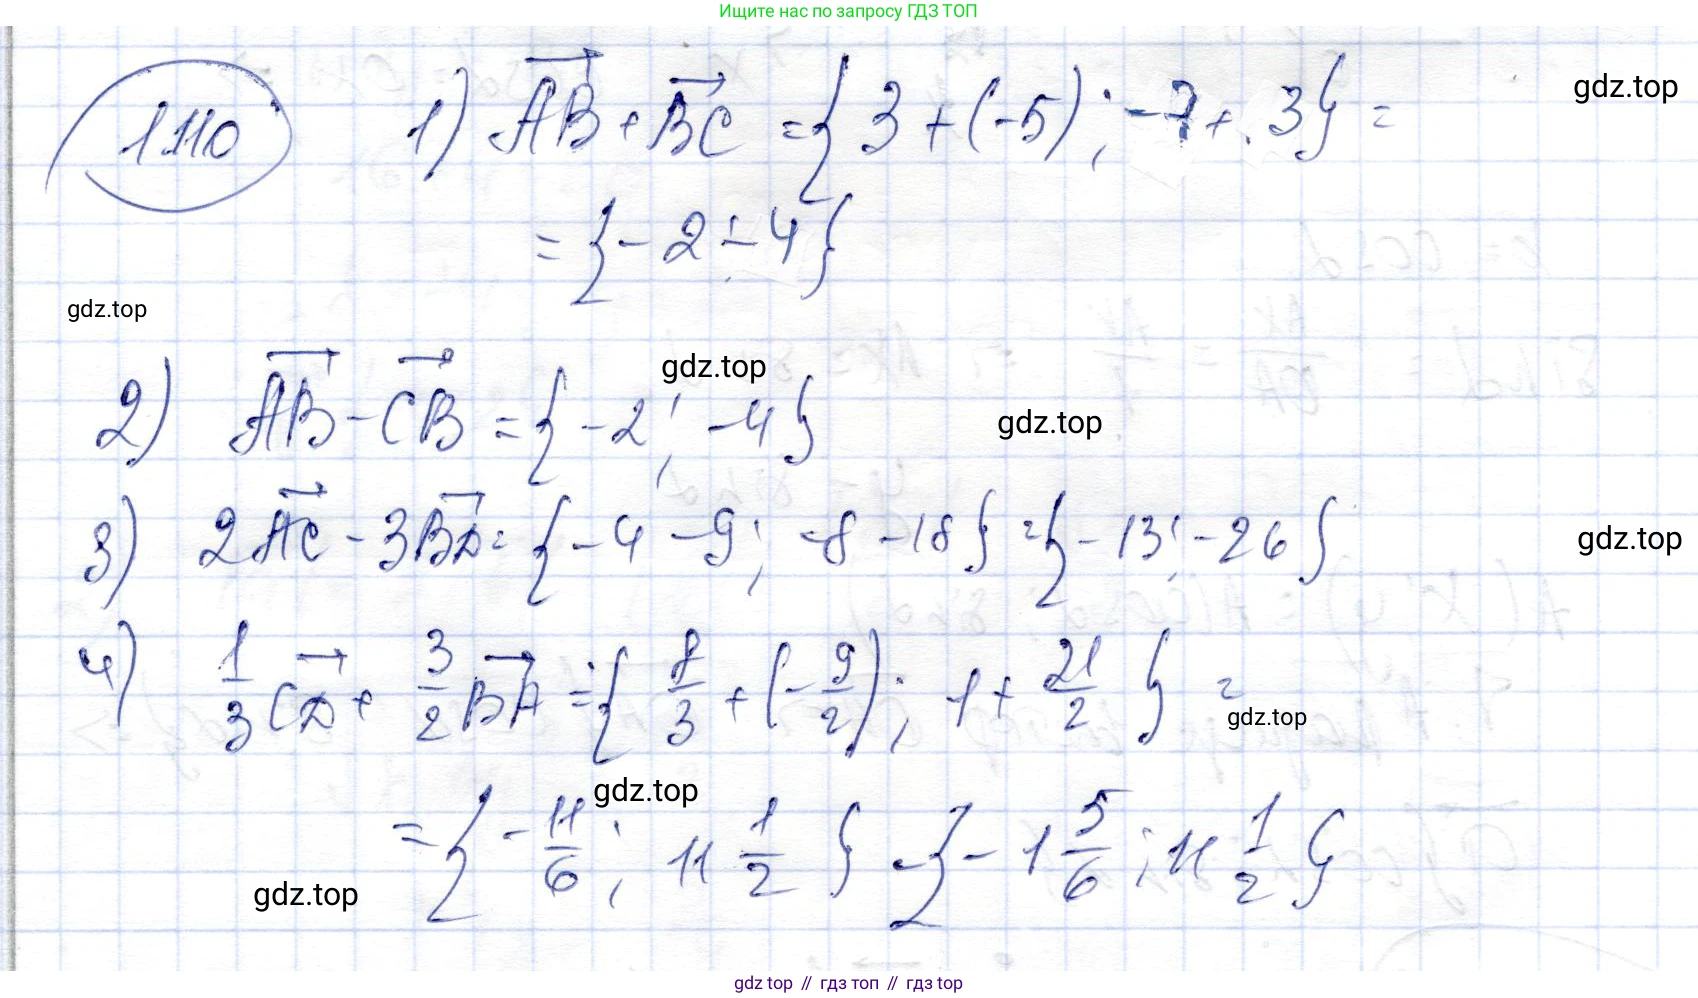 Ищите нас по запросу ГДЗ ТОП
1110 1) AB + BC = { 3 + (-5) ; -7 + 3 } =
gdz.top
= { -2 ; -4 }
gdz.top
2) AB - CB = { -2 ; -4 }
gdz.top
gdz.top
3) 2AC - 3BD = { -4 -9 ; -8 -18 } = { -13 ; -26 }
gdz.top
4) 1/3 CD + 3/2 BA = { 8/3 + (-9/2) ; 1 + 21/2 } =
gdz.top
gdz.top
= { -11/6 ; 11 1/2 } = { -1 5/6 ; 11 1/2 }
gdz.top
gdz top // гдз топ // гдз top